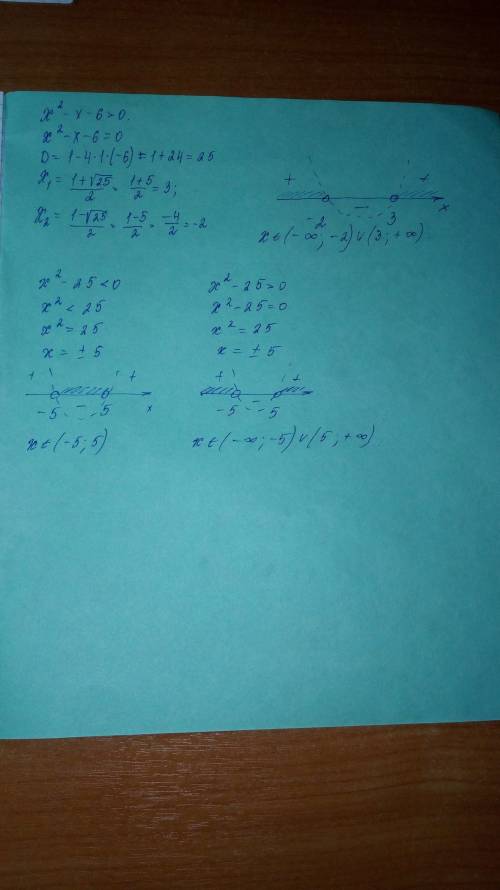 x² - x - 6 > 0.
x² - x - 6 = 0
D = 1 - 4·1·(-6) = 1 + 24 = 25
x₁ = (1+√25)/2 = (1+5)/2 = 3;
x₂ = (1-√25)/2 = (1-5)/2 = -4/2 = -2
+ - +
-2 3 x
x ∈ (-∞; -2) ∪ (3; +∞)
x² - 25 < 0
x² < 25
x² = 25
x = ± 5
+ - +
-5 5 x
x ∈ (-5; 5)
x² - 25 > 0
x² - 25 = 0
x² = 25
x = ± 5
+ - +
-5 5
x ∈ (-∞; -5) ∪ (5; +∞)